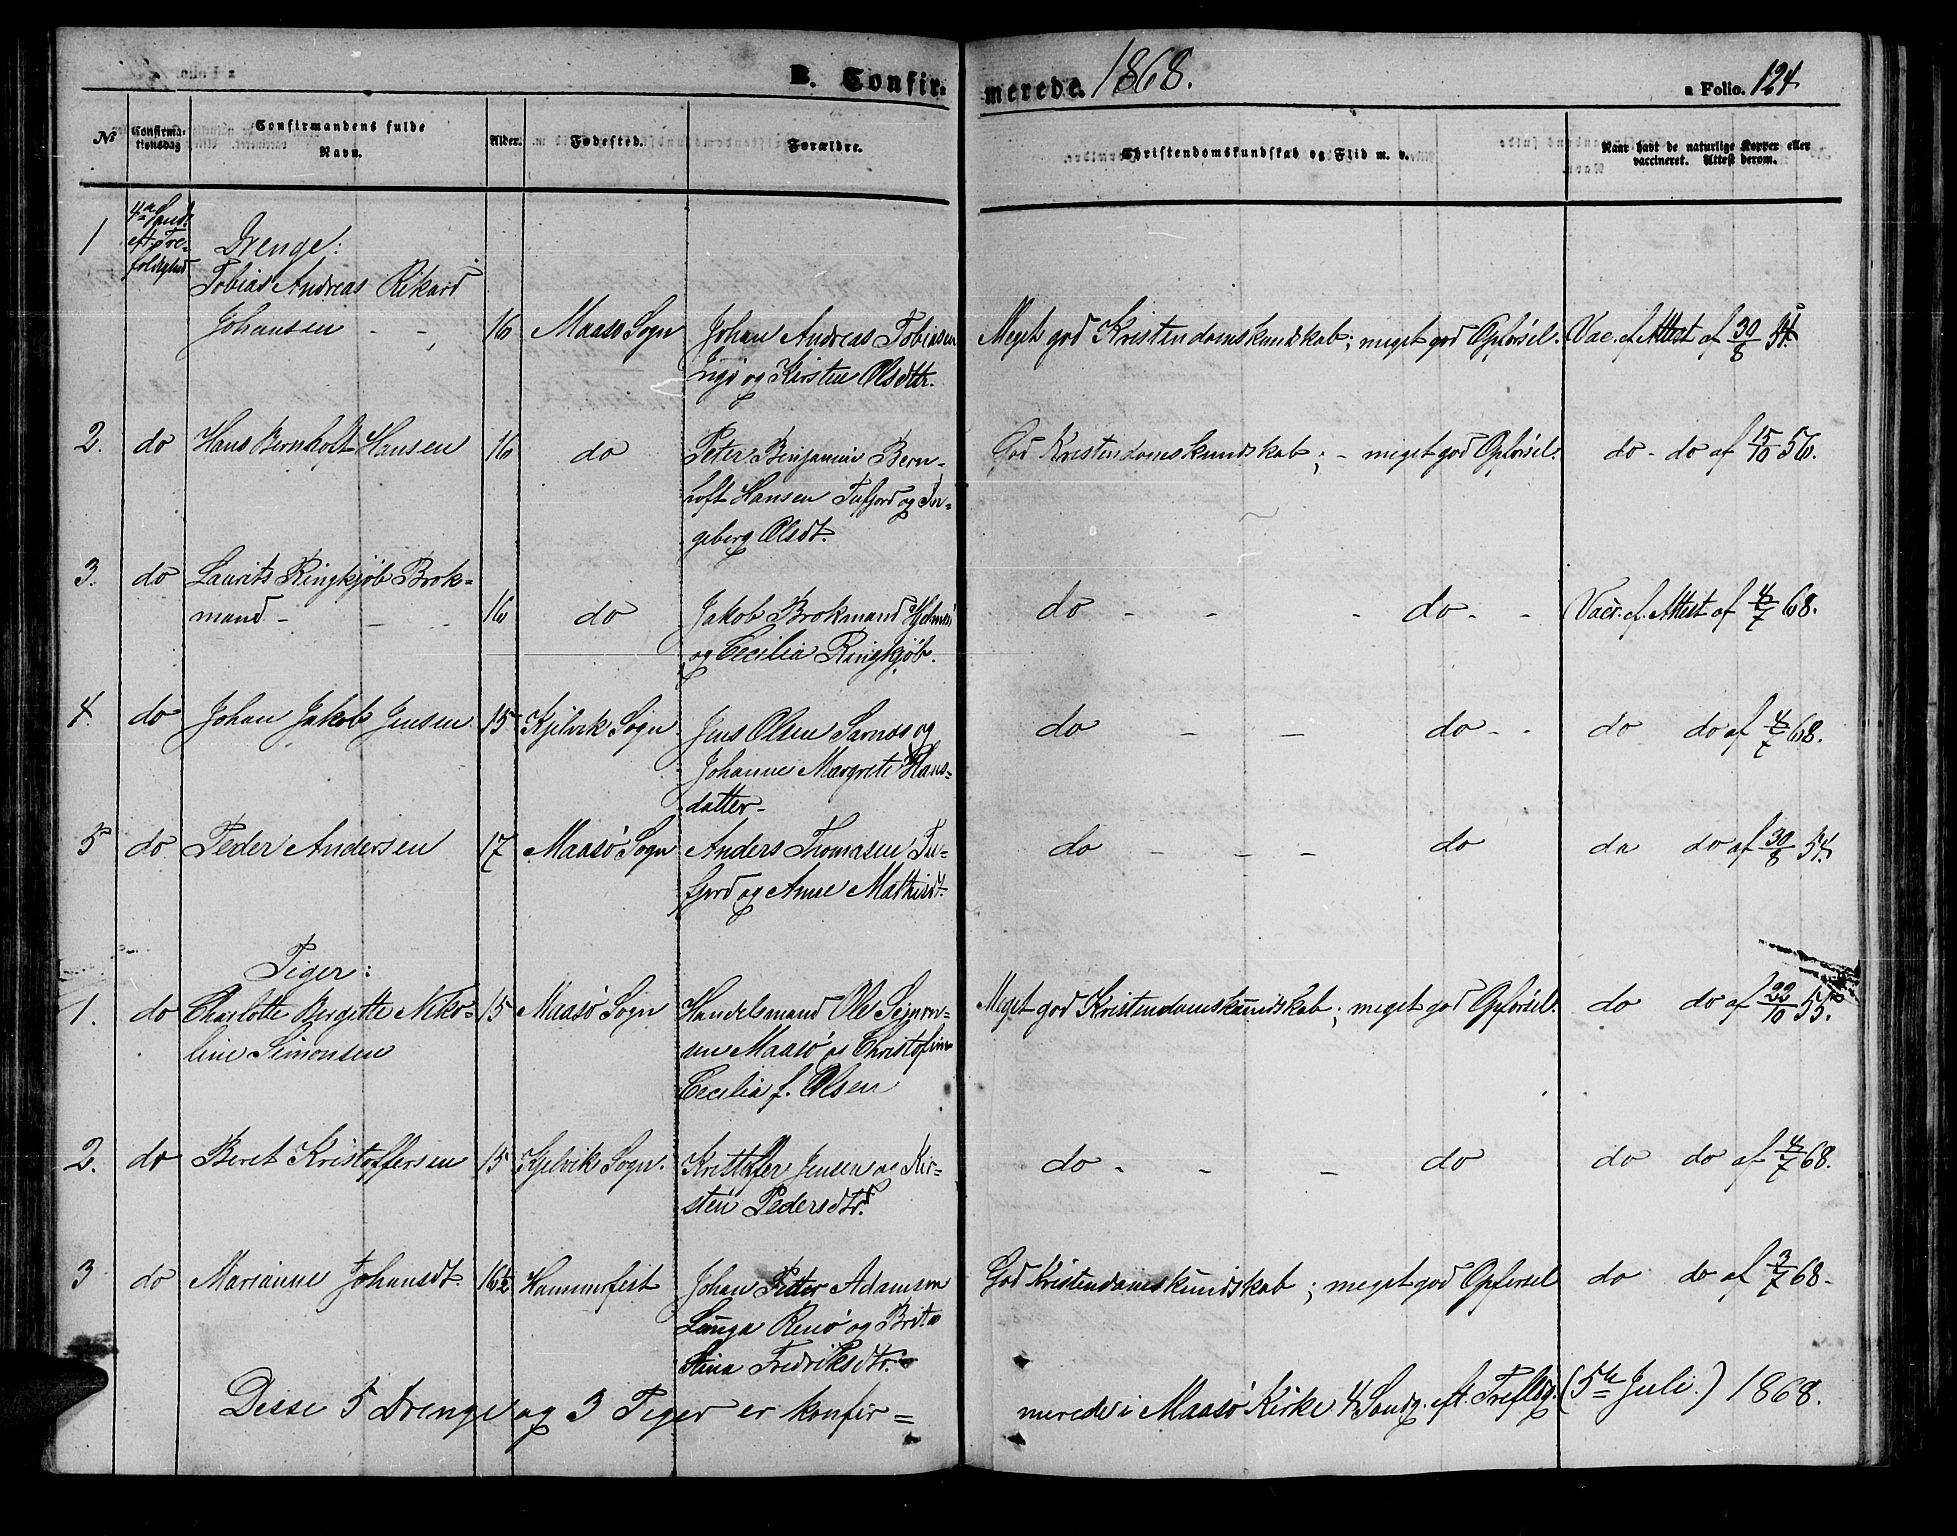 B. Confirmerede. 1868.
a Folio. 124
№ Confirmationsdag Confirmandens fulde Navn. Alder. Fødested. Forældre. Christendomskundskab og Flid m. v. Naar havt de naturlige Kopper eller vaccineret. Attest derom.
Drenge:
1 4de Sønd. eft. Trefoldighed Tobias Andreas Rikard
Johansen 16 Maasø Sogn Johan Andreas Tobiasen Meget god Kristendomskundskab; meget god Opførsel. Vac. ef. Attest af 30/8 54.
og Kirsten Olsdttr.
2. do Hans Bernhoft Hansen 16 do Peter Benjamin Bern- God Kristendomskundskab; - meget god Opførsel. do - do af 15/10 56.
hoft Hansen Tufjord og In-
geberg Olsdt.
3. do Laurits Ringkjøb Brok-
mand - 16 do Jakob Brokmand Hjelmsø do - - - do - - Vacc. ef. Attest af 4/7 68.
og Cecilia Ringkjøb.
4. do Johan Jakob Jensen 15 Kjelvik Sogn Jens Olsen Sarnæs og do - - do - - do do af 4/7 68.
Johanne Margrete Hans-
datter -
5 do Peder Andersen 17 Maasø Sogn Anders Thomasen Tu- do - - - do do do af 30/8 54
fjord og Anne Mathisdt.
Piger:
1. do Charlotte Bergette Niko- 15 Maasø Sogn Handelsmand Ole Simon- Meget god Kristendomskundskab; meget god Opførsel. do do af 22/10 55.
line Simonsen
sen Maasø og Christofine
Cecilia f. Olsen
2. do Beret Kristoffersen 15 Kjelvik Sogn. Kristoffer Jensen og Kir- do - - - do do do af 4/7 68.
sten Pedersdtr.
3 do Marianne Johansdt. 16½ Hammerfest Johan Peter Adamsen God Kristendomskundskab; meget god Opførsel do do af 3/7 68 -
Lunga Renø og Brita
Stina Fredriksdtr.
Disse 5 Drenge og 3 Piger er konfir= merede i Maasø Kirke 4 Søndg. eft. Trefldg. (5te Juli.) 1868.